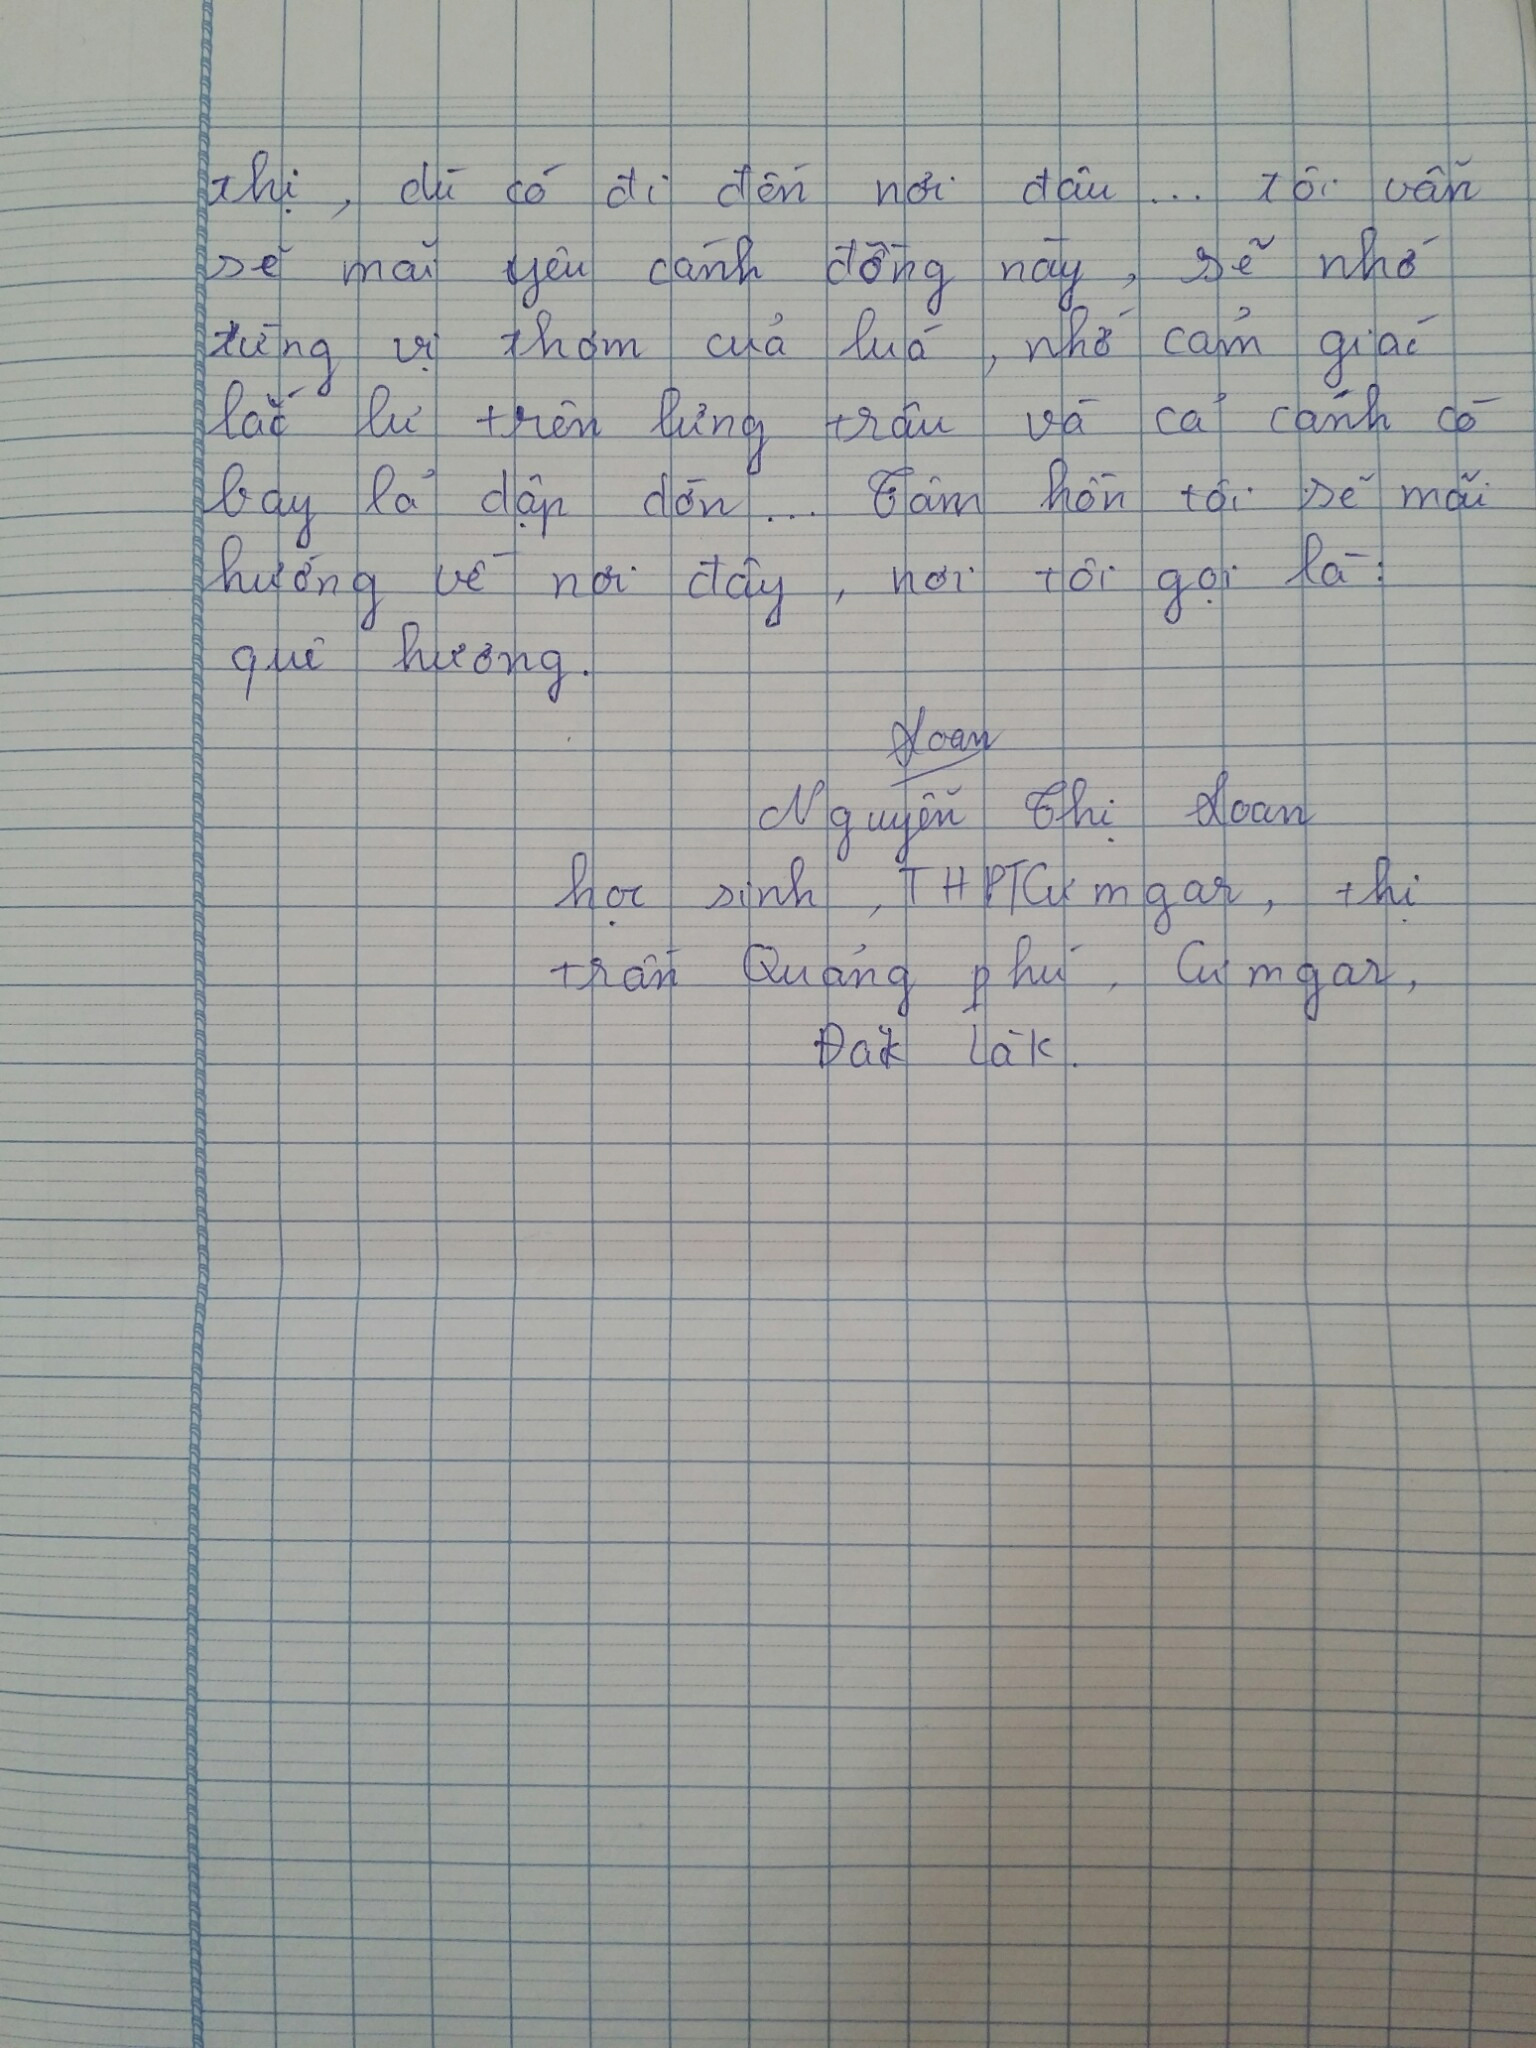 thị, dù có đi đến nơi đâu... tôi vẫn
sẽ mãi yêu cánh đồng này, sẽ nhớ
từng vị thơm của lúa, nhớ cảm giác
lắc lư trên lưng trâu và cả cánh cò
bay lả dập dờn... Tâm hồn tôi sẽ mãi
hướng về nơi đây, nơi tôi gọi là:
quê hương.
Loan
Nguyễn Thị Loan
học sinh, THPT Cư mgar, thị
trấn Quảng phú, Cư mgar,
Đắk Lăk.